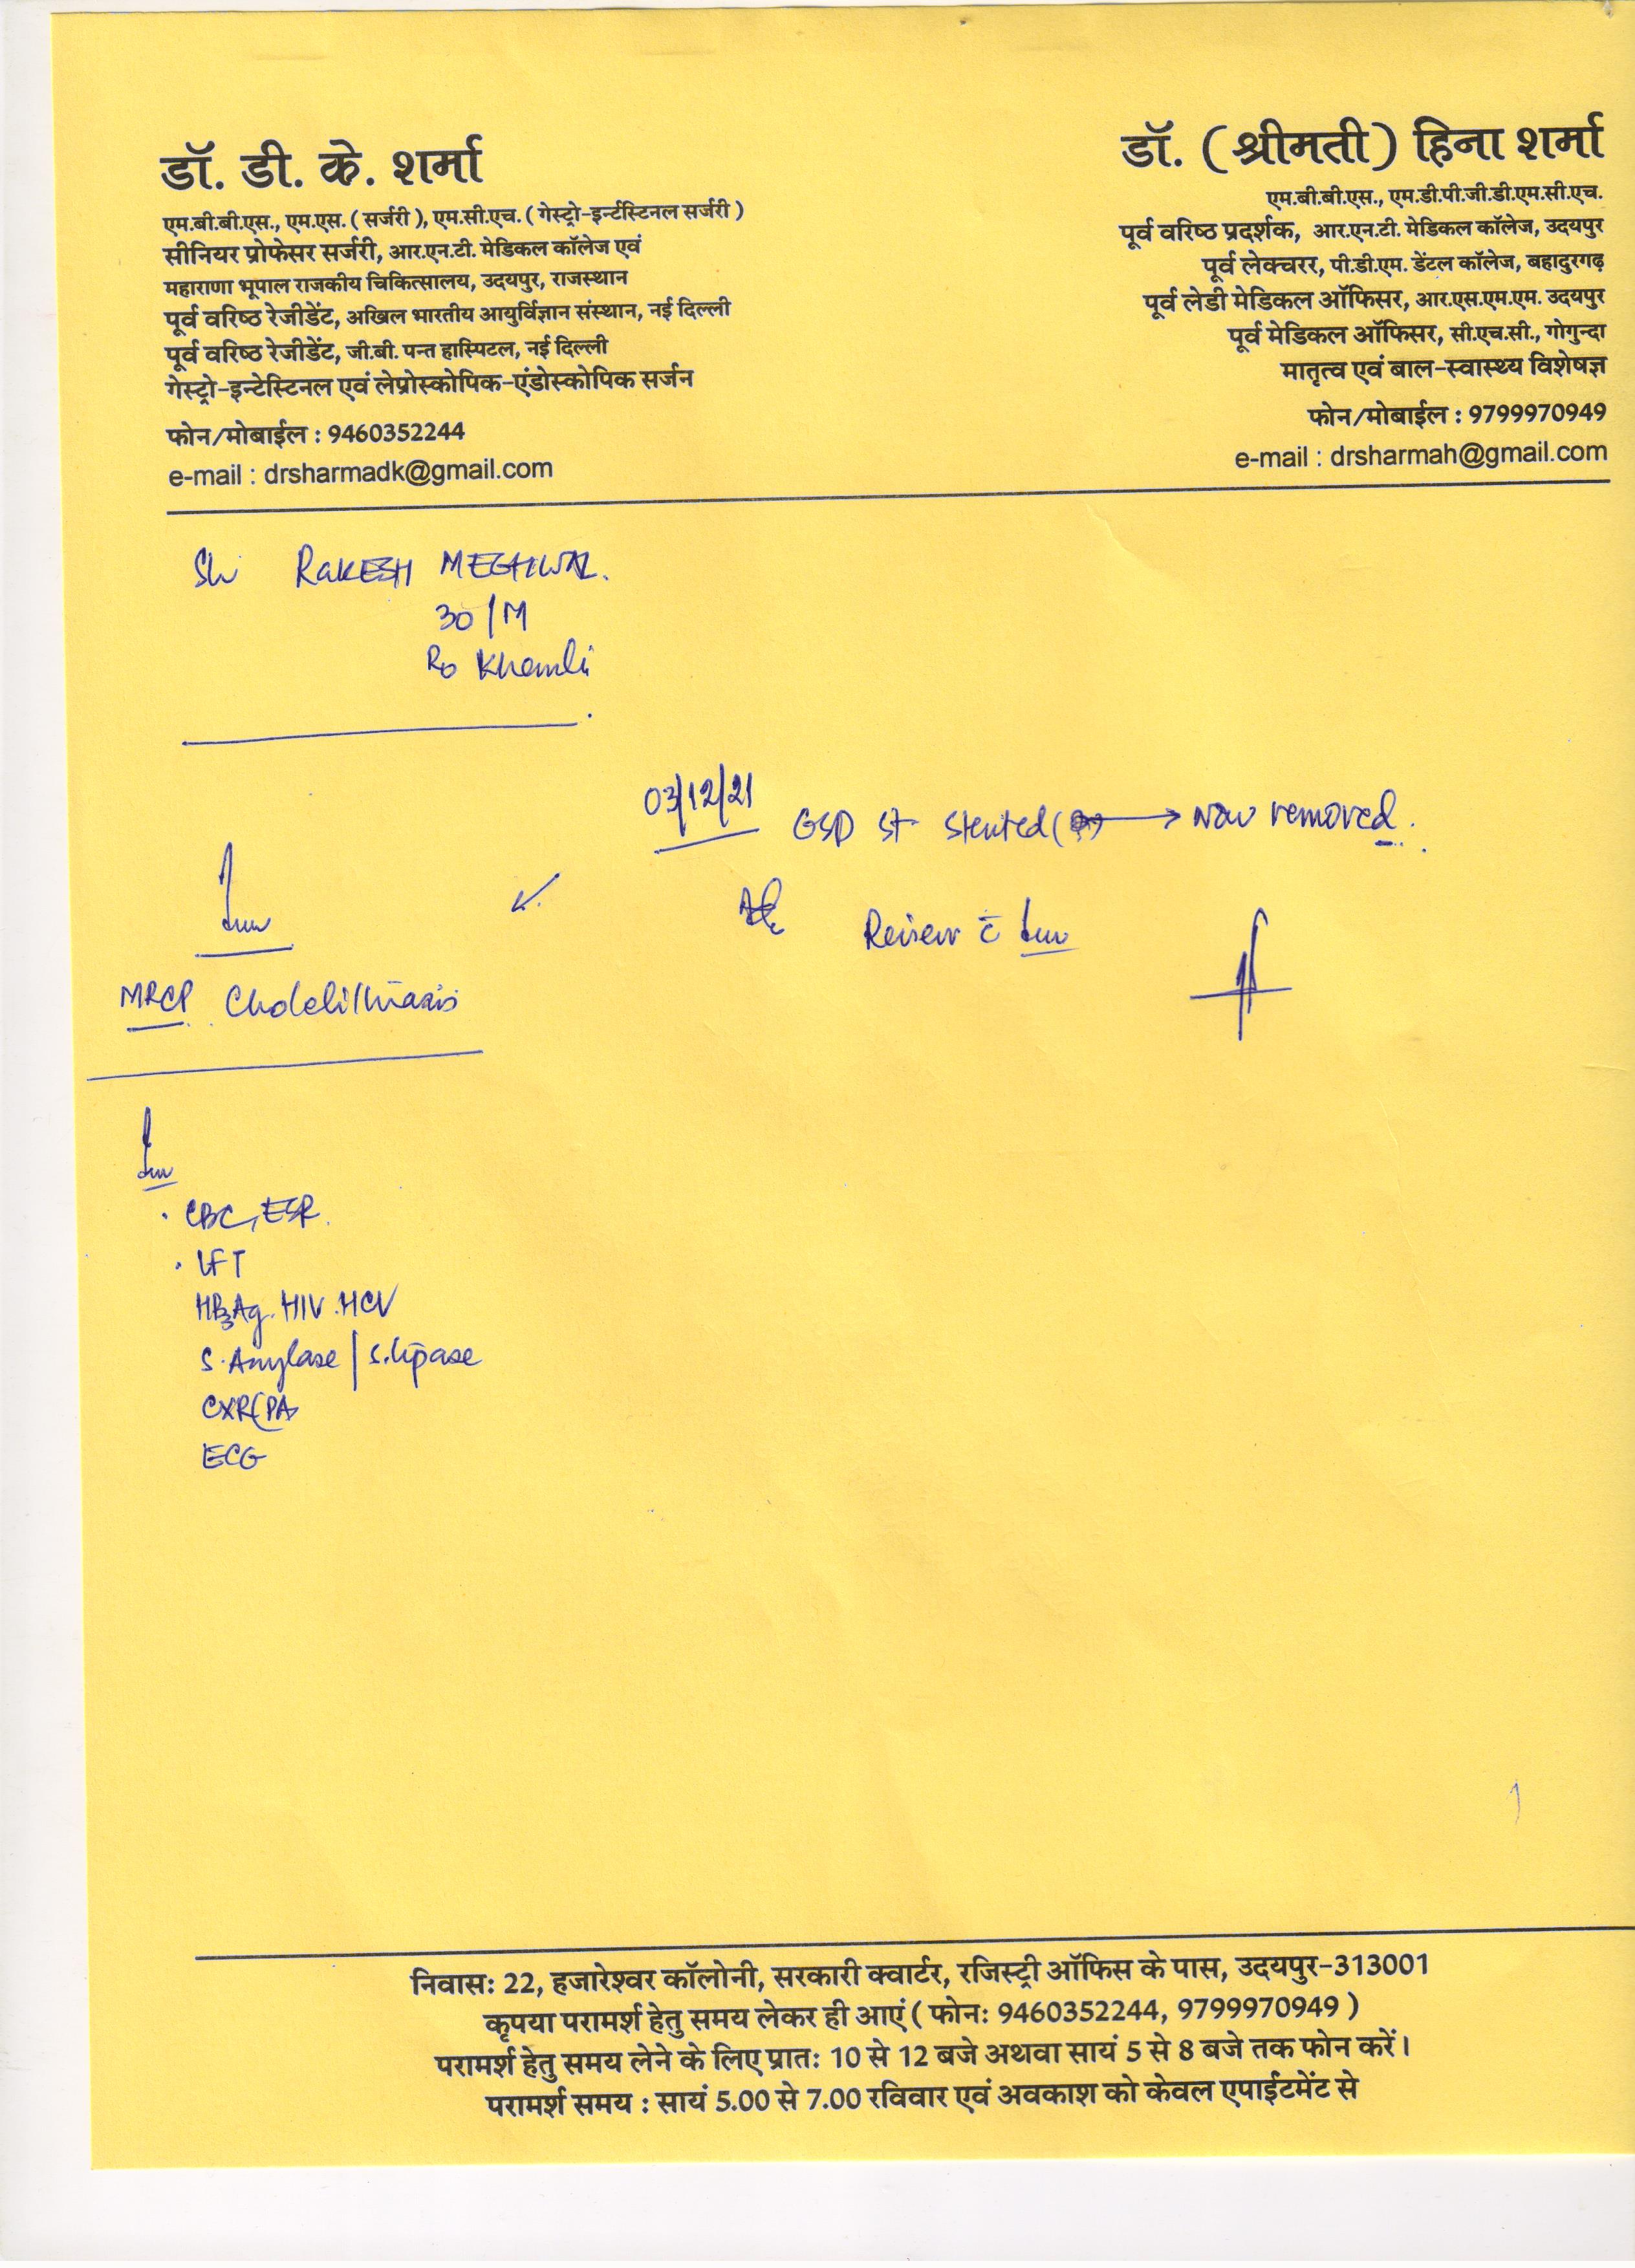 डॉ. डी. के. शर्मा
एम.बी.बी.एस., एम.एस. ( सर्जरी ), एम.सी.एच. ( गेस्ट्रो-इन्र्टेस्टिनल सर्जरी )
सीनियर प्रोफेसर सर्जरी, आर.एन.टी. मेडिकल कॉलेज एवं
महाराणा भूपाल राजकीय चिकित्सालय, उदयपुर, राजस्थान
पूर्व वरिष्ठ रेजीडेंट, अखिल भारतीय आयुर्विज्ञान संस्थान, नई दिल्ली
पूर्व वरिष्ठ रेजीडेंट, जी.बी. पन्त हास्पिटल, नई दिल्ली
गेस्ट्रो-इन्टेस्टिनल एवं लेप्रोस्कोपिक-एंडोस्कोपिक सर्जन
फोन/मोबाईल : 9460352244
e-mail : drsharmadk@gmail.com
डॉ. ( श्रीमती ) हिना शर्मा
एम.बी.बी.एस., एम.डी.पी.जी.डी.एम.सी.एच.
पूर्व वरिष्ठ प्रदर्शक, आर.एन.टी. मेडिकल कॉलेज, उदयपुर
पूर्व लेक्चरर, पी.डी.एम. डेंटल कॉलेज, बहादुरगढ़
पूर्व लेडी मेडिकल ऑफिसर, आर.एस.एम.एम. उदयपुर
पूर्व मेडिकल ऑफिसर, सी.एच.सी., गोगुन्दा
मातृत्व एवं बाल-स्वास्थ्य विशेषज्ञ
फोन/मोबाईल : 9799970949
e-mail : drsharmah@gmail.com
RAKESH MEGHWAL.
30/M
R/o Khemli
03/12/21
GSD st stented → Now removed.
Review c̄ Inv
Inv
MRCP. Cholelithiasis
Inv
. CBC, ESR.
. LFT
HBsAg. HIV. HCV
S. Amylase / S. lipase
CXR(PA)
ECG
निवास: 22, हजारेश्वर कॉलोनी, सरकारी क्वार्टर, रजिस्ट्री ऑफिस के पास, उदयपुर-313001
कृपया परामर्श हेतु समय लेकर ही आएं ( फोन: 9460352244, 9799970949 )
परामर्श हेतु समय लेने के लिए प्रात: 10 से 12 बजे अथवा सायं 5 से 8 बजे तक फोन करें।
परामर्श समय : सायं 5.00 से 7.00 रविवार एवं अवकाश को केवल एपाईटमेंट से